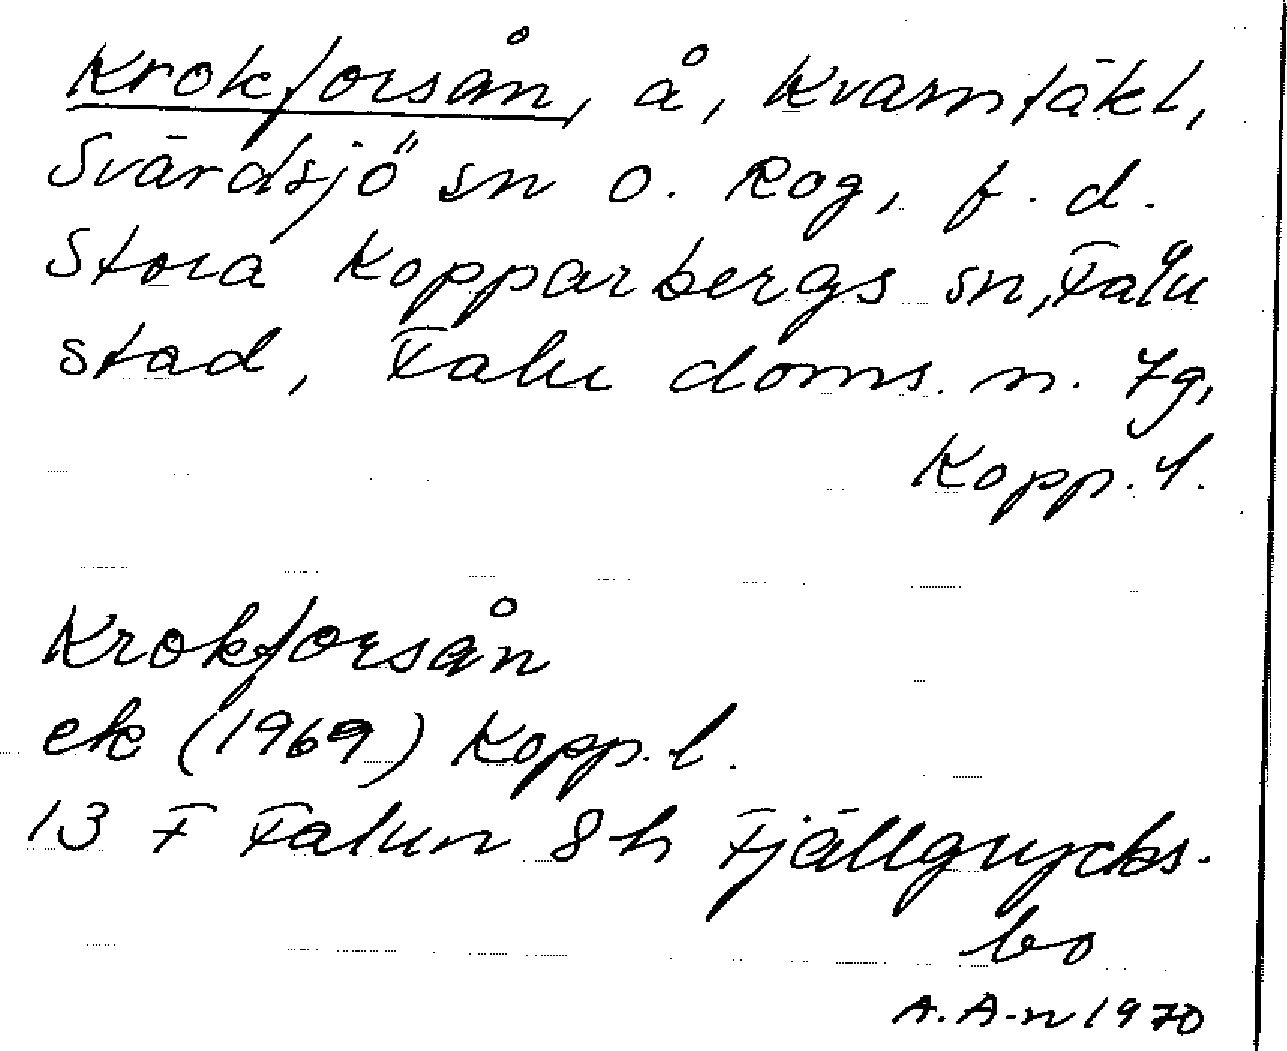 Krokforsån, å, Kvarntäkt,
Svärdsjö sn o. Rog, f.d.
Stora Kopparbergs sn, Falu
stad, Falu doms. n. tg,
Kopp. l.
Krokforsån
ek (1969) Kopp. l.
13 F Falun 8h Fjällgrycks-
bo
A. A-n 1970